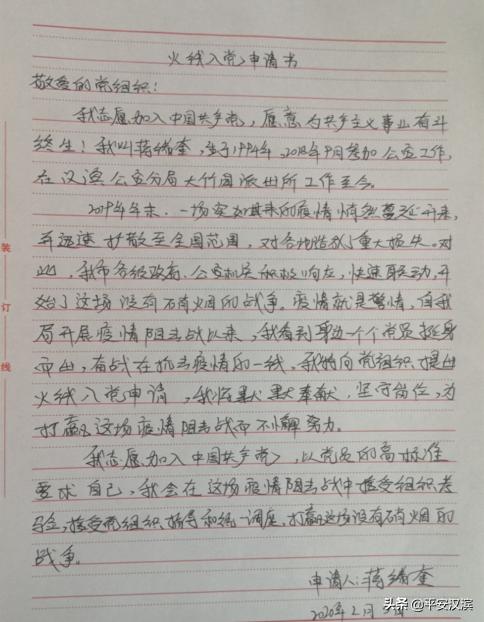 火线入党申请书
敬爱的党组织:
我志愿加入中国共产党,愿意为共产主义事业奋斗
终生!我叫蒋绪奎,生于1994年,2018年9月参加公安工作,
在汉滨公安分局大竹园派出所工作至今。
2019年年末,一场突如其来的疫情悄然蔓延开来,
并迅速扩散至全国范围,对各地造成了重大损失。对
此,我市各级政府、公安机关积极响应,快速联动,开
始了这场没有硝烟的战争。疫情就是警情,自我
局开展疫情阻击战以来,我看到身边一个个党员挺身
而出,奋战在抗击疫情的一线,我特向党组织提出
火线入党申请,我将默默奉献,坚守岗位,为
打赢这场疫情阻击战而不懈努力。
我志愿加入中国共产党,以党员的高标准
要求自己,我会在这场疫情阻击战中接受组织考
验,接受党组织指导和统一调度,打赢这场没有硝烟的
战争。
申请人:蒋绪奎
2020年2月 日
装
订
线
头条 @平安汉滨